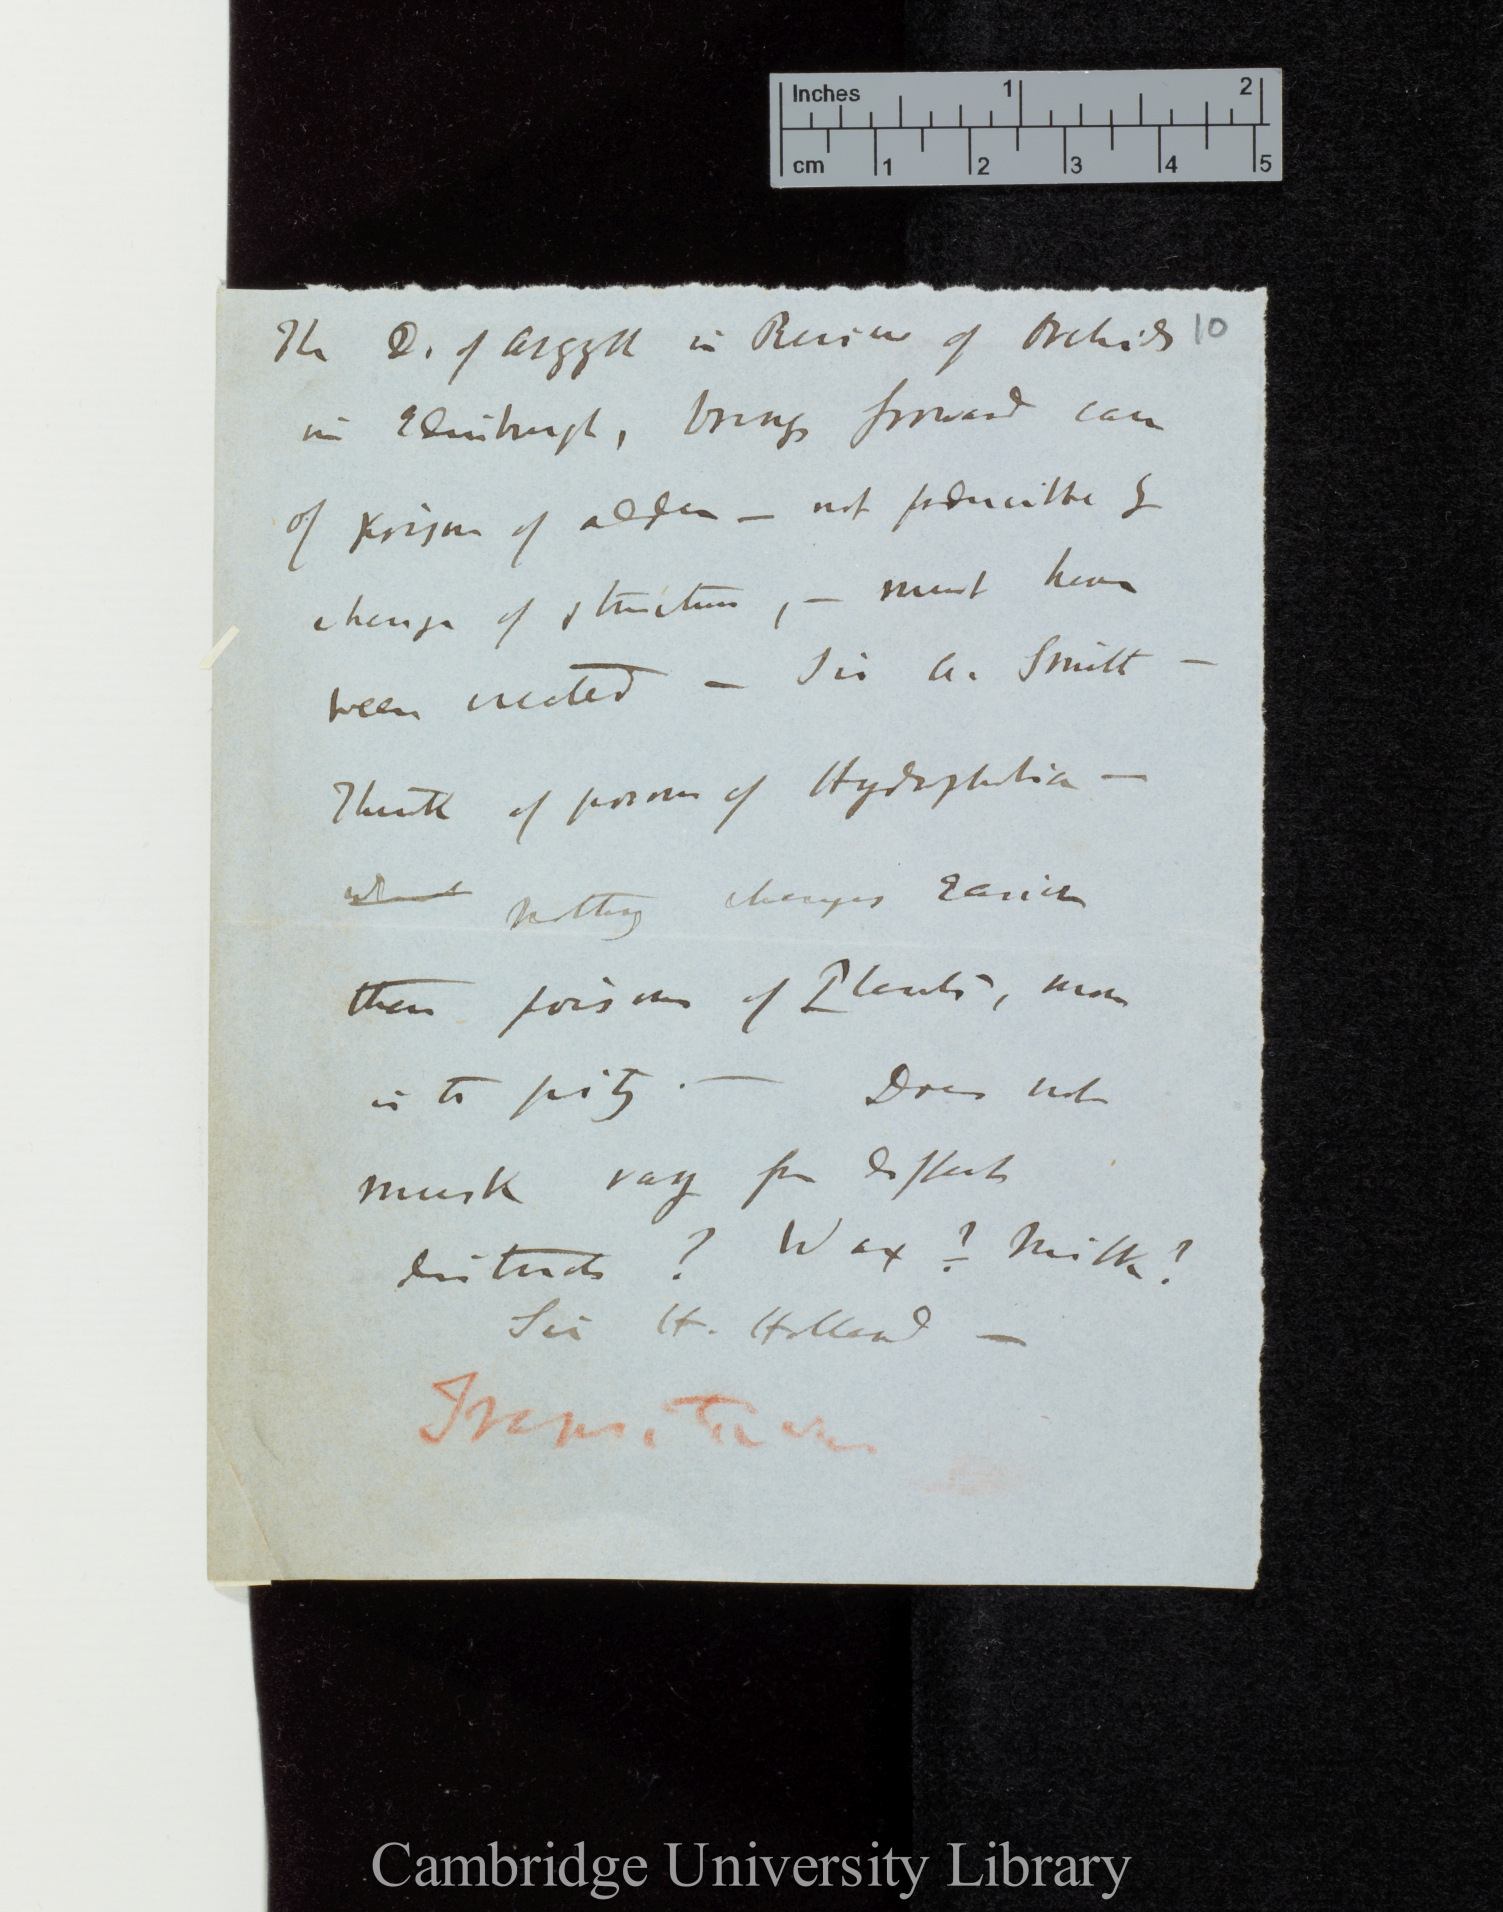 Inches 1 2
cm 1 2 3 4 5
10
The D. of Argyll in Review of Orchids
in Edinburgh, brings forward case
of poison of adder — not producible by
change of structure, — must have
been created — Sir A. Smith —
Think of poison of Hydrophobia —
nothing changes easier
than poisons of Plants, man
is to pity. — Does not
musk vary for different
districts? Wax? Milk?
Sir H. Holland —
Cambridge University Library